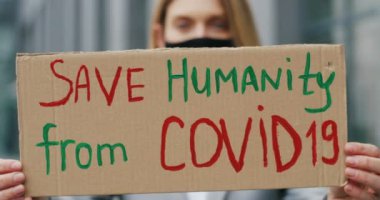 SAVE HUMANITY
from COVID19